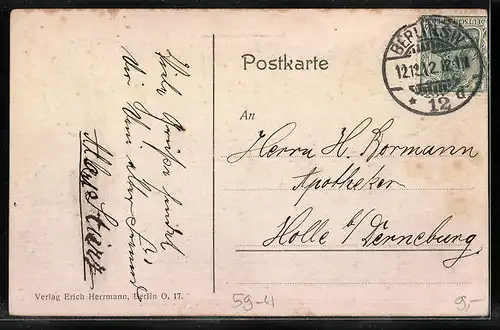 Viele Grüße sendet
Dir Dein alter Freund
Postkarte
BERLIN SW
12.12.12. 12-1N
* 12 d
An
Herrn H. Bormann
Apotheker
Holle b/ Derneburg
Verlag Erich Herrmann, Berlin O. 17.
59-4
9,-